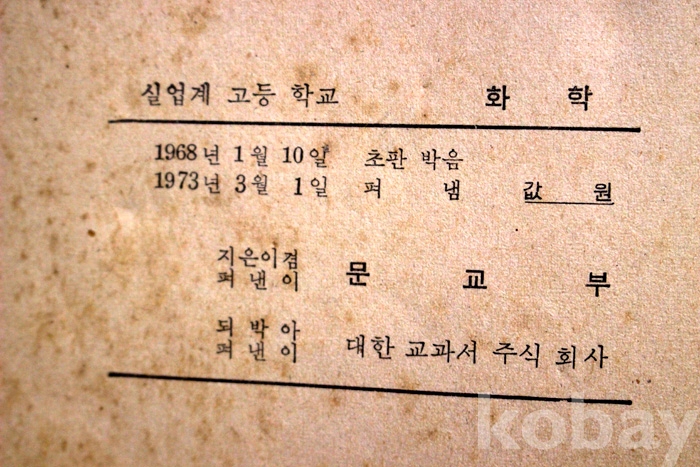 실업계 고등 학교 화 학
1968년 1월 10일 초판 박음
1973년 3월 1일 펴 냄 값 원
지은이겸
펴 낸 이 문 교 부
되 박 아
펴 낸 이 대한 교과서 주식 회사
kobay